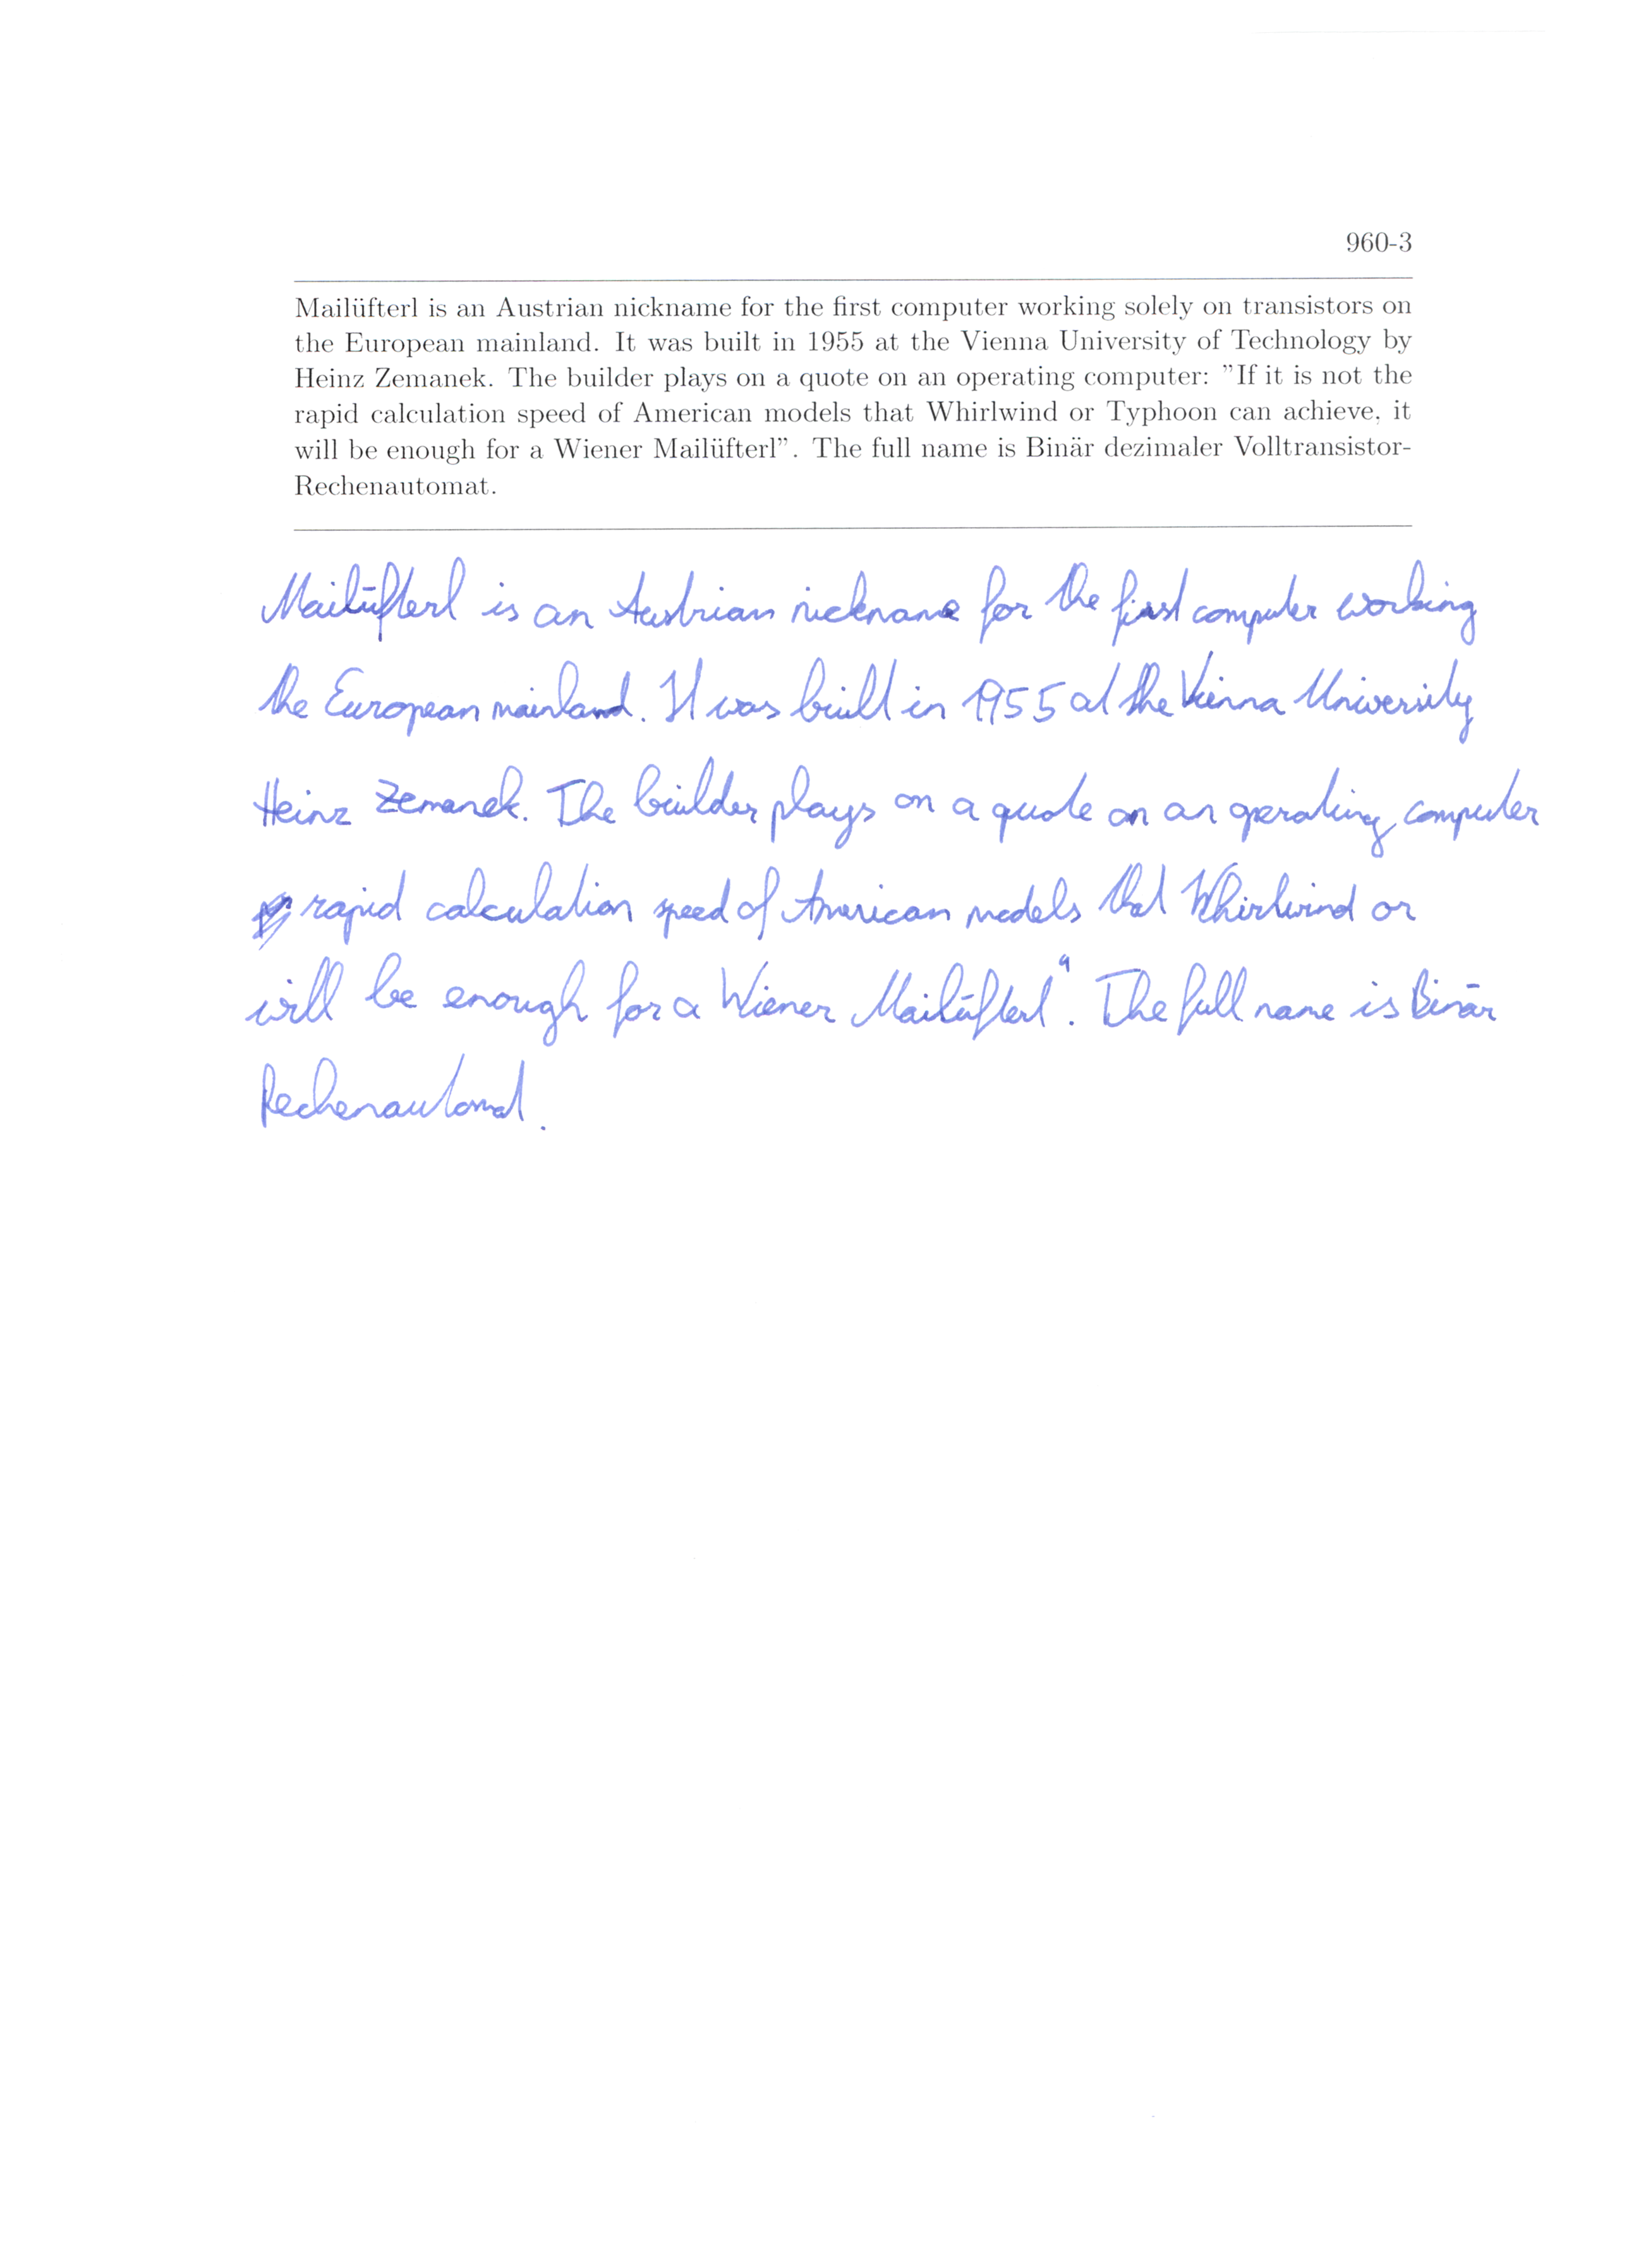 960-3
Mailüfterl is an Austrian nickname for the first computer working solely on transistors on
the European mainland. It was built in 1955 at the Vienna University of Technology by
Heinz Zemanek. The builder plays on a quote on an operating computer: "If it is not the
rapid calculation speed of American models that Whirlwind or Typhoon can achieve, it
will be enough for a Wiener Mailüfterl". The full name is Binär dezimaler Volltransistor-
Rechenautomat.
Mailüfterl is an Austrian nickname for the first computer working
the European mainland. It was built in 1955 at the Vienna University
Heinz Zemanek. The builder plays on a quote on an operating computer
rapid calculation speed of American models that Whirlwind or
will be enough for a Wiener Mailüfterl". The full name is Binär
Rechenautomat.